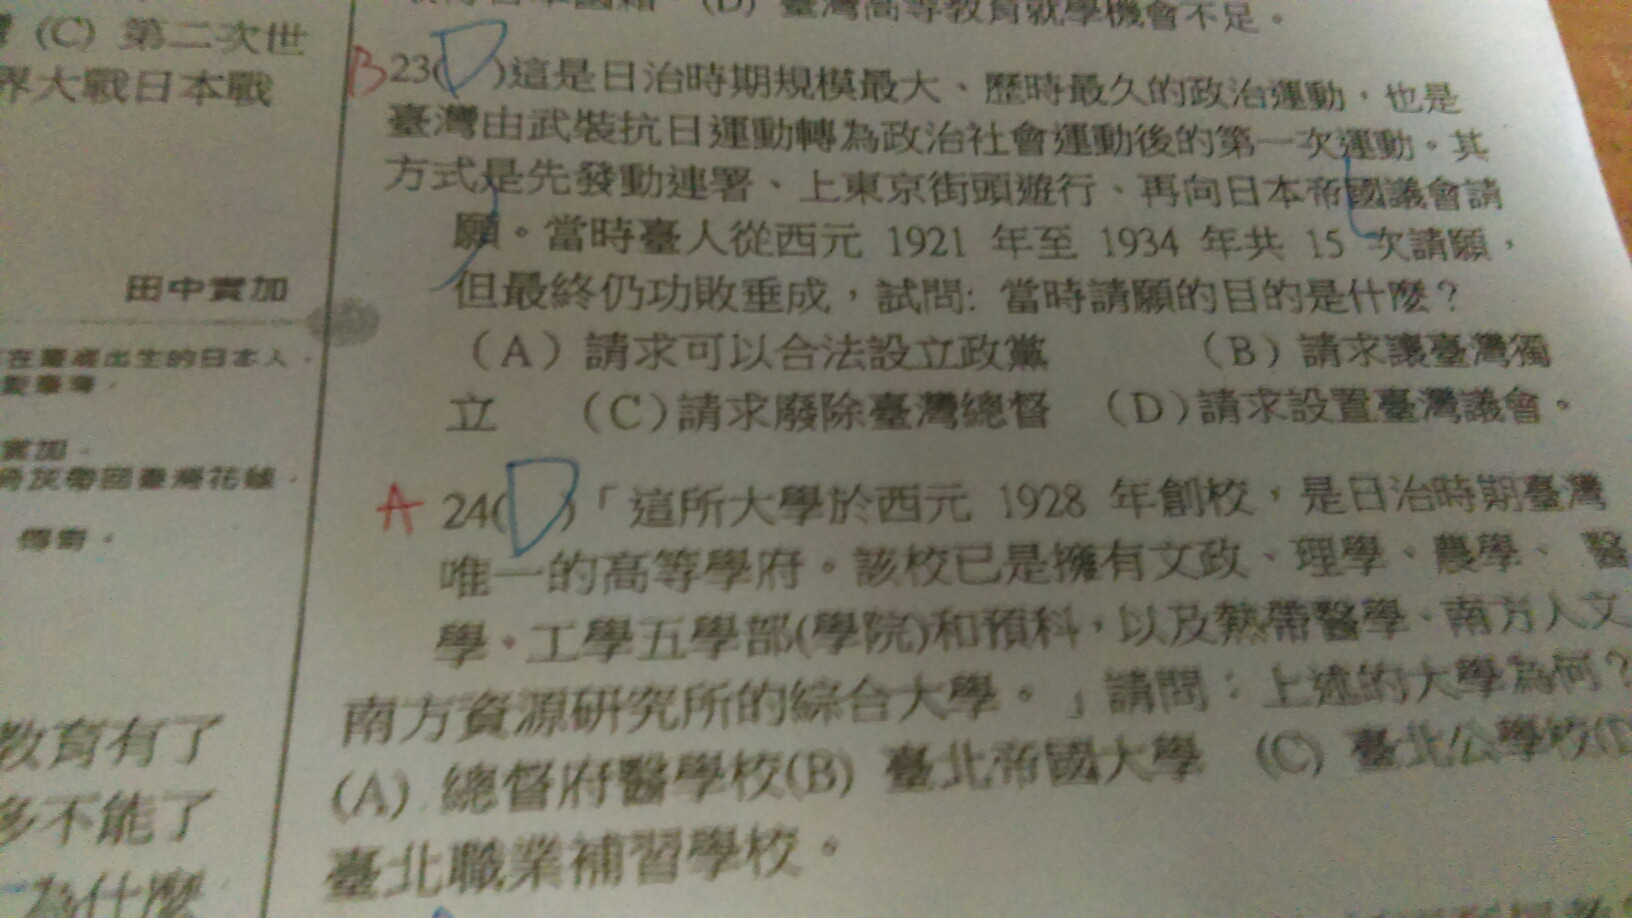 (C) 第二次世
界大戰日本戰
田中實加
在臺灣出生的日本人。
實加。
骨灰帶回臺灣花蓮。
傳奇。
教育有了
多不能了
為什麼
(D) 臺灣高等教育就學機會不足。
B 23(D)這是日治時期規模最大、歷時最久的政治運動，也是
臺灣由武裝抗日運動轉為政治社會運動後的第一次運動。其
方式是先發動連署、上東京街頭遊行、再向日本帝國議會請
願。當時臺人從西元 1921 年至 1934 年共 15 次請願，
但最終仍功敗垂成，試問: 當時請願的目的是什麼？
（A）請求可以合法設立政黨 （B）請求讓臺灣獨
立 （C)請求廢除臺灣總督 （D)請求設置臺灣議會。
A 24(D)「這所大學於西元 1928 年創校，是日治時期臺灣
唯一的高等學府。該校已是擁有文政、理學、農學、醫
學、工學五學部(學院)和預科，以及熱帶醫學、南方人文
南方資源研究所的綜合大學。」請問：上述的大學為何？
(A) 總督府醫學校(B) 臺北帝國大學 (C) 臺北公學校(D
臺北職業補習學校。